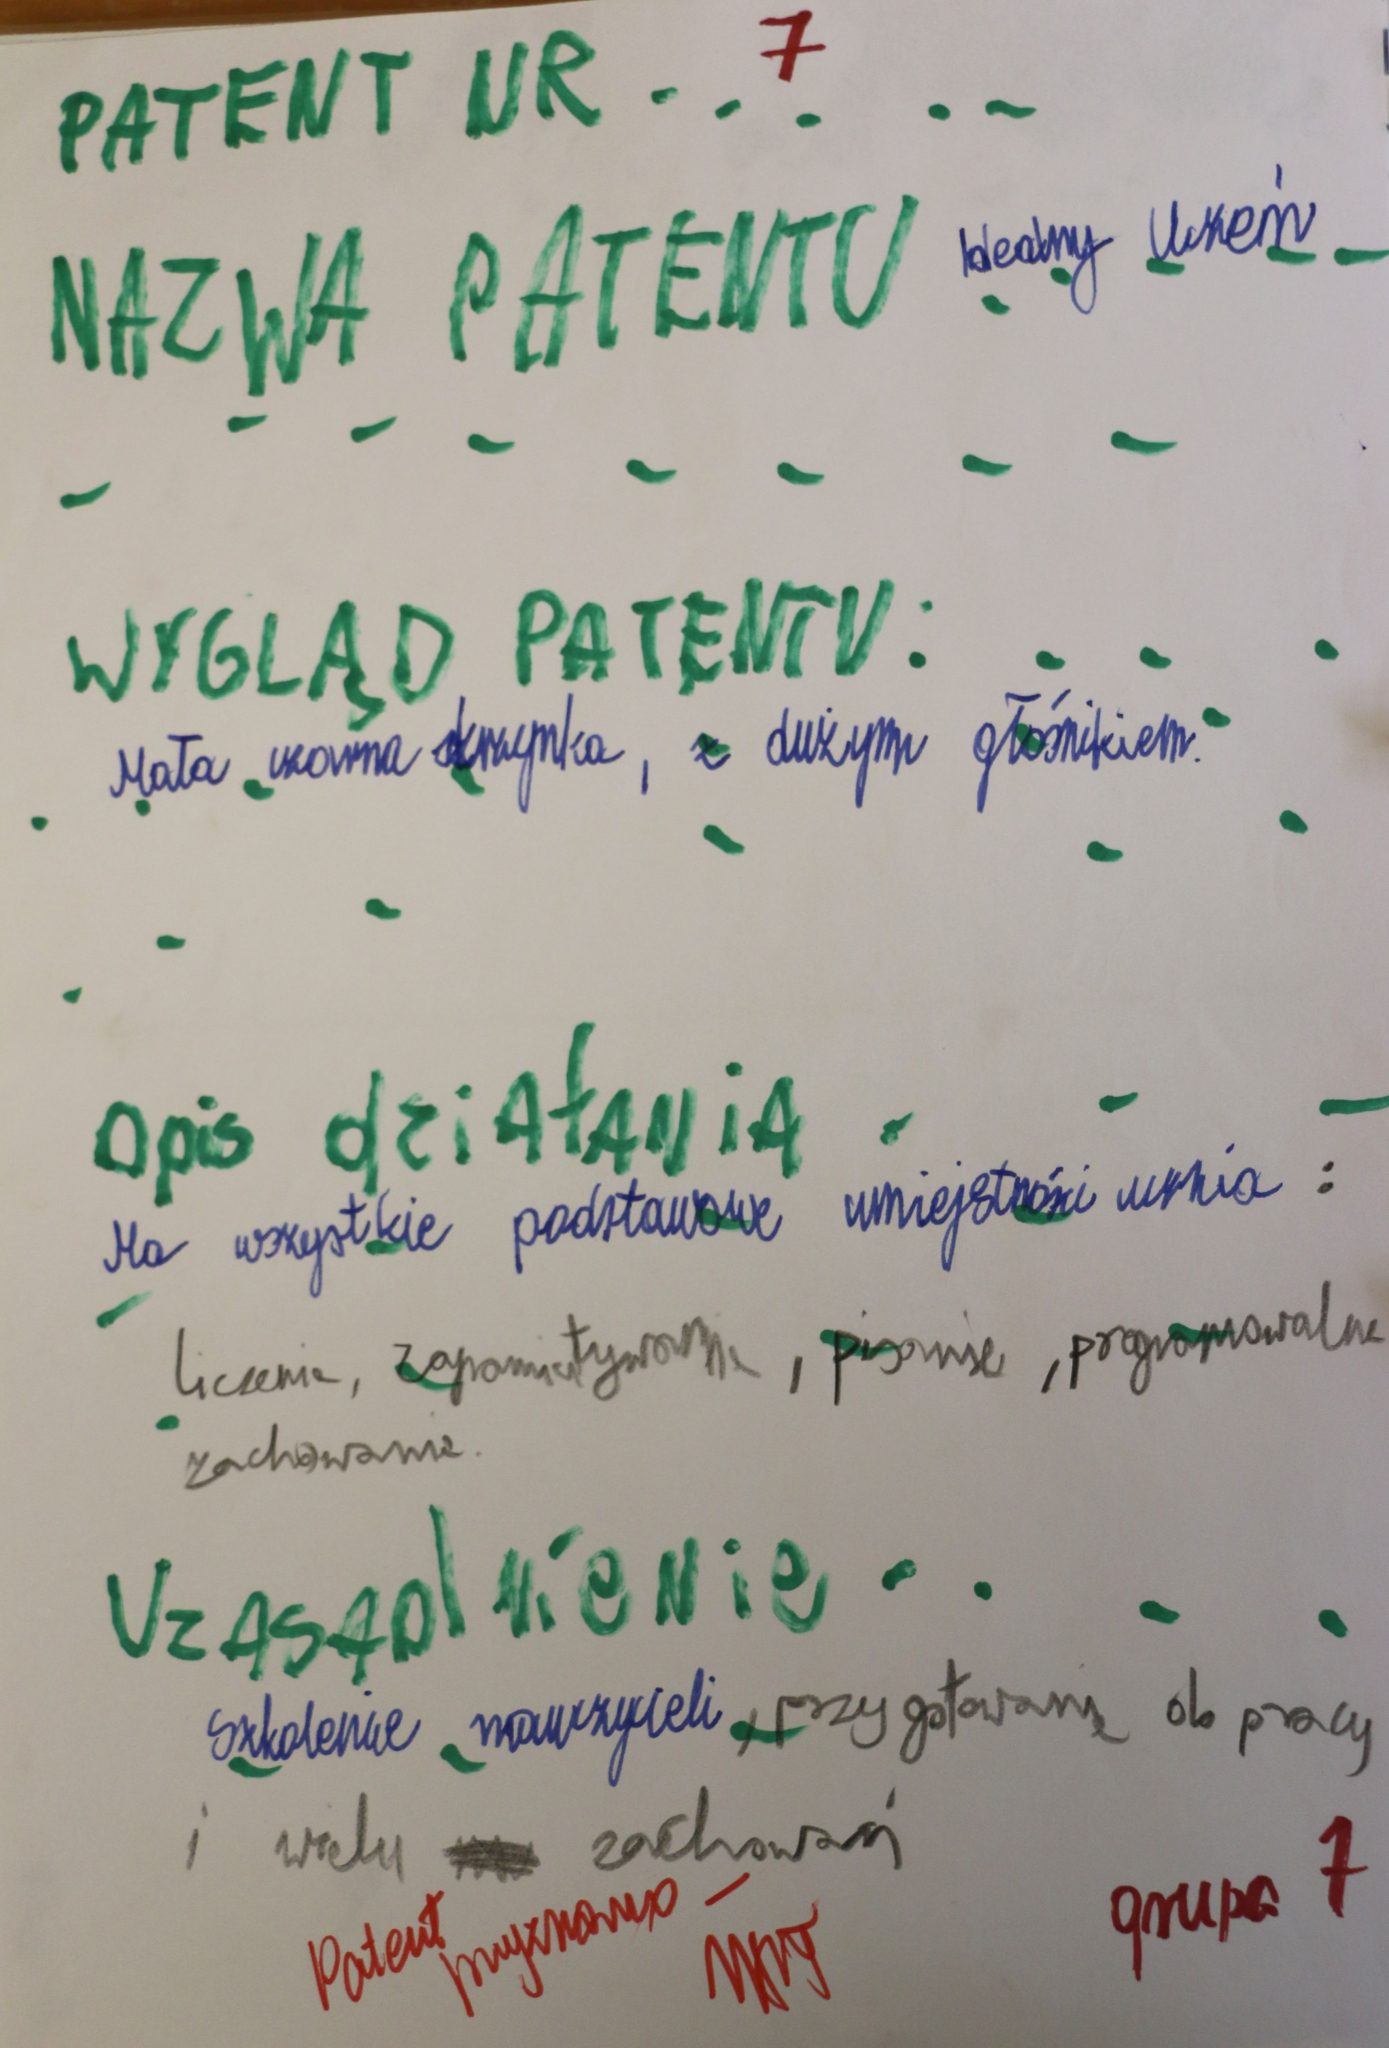 PATENT NR 7
NAZWA PATENTU Idealny Uczeń
WYGLĄD PATENTU:
Mała czarna skrzynka, z dużym głośnikiem.
Opis działania
Ma wszystkie podstawowe umiejętności ucznia :
liczenie, zapamiętywanie, pisanie, programowalne
zachowanie.
Uzasadnienie
Szkolenie nauczycieli, przygotowanie do pracy
i wielu zachowań
Patent przyznano –
grupa 7